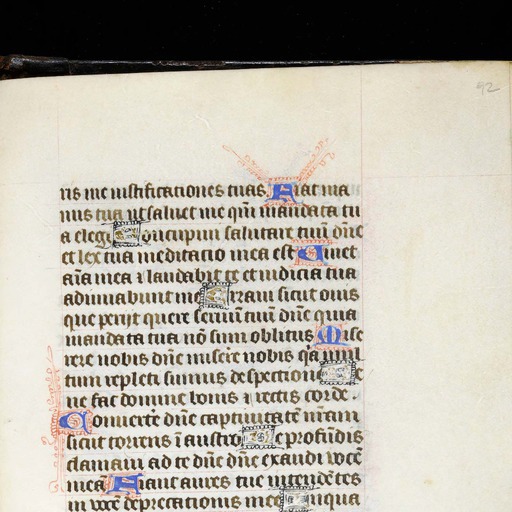 92
ris me iustificationes tuas Fiat ma
nus tua ut saluet me qm̄ mandata tu
a elegi Concupiui salutare tuū dn̄e
et lex tua meditatio mea est Viuet
aīa mea ⁊ laudabit te et iudicia tua
adiuuabunt me Erraui sicut ouis
que perijt quere seruū tuū dn̄e quia
mandata tua nō sum oblitus Mise
rere nobis dn̄e misere nobis qa mul
tum repleti sumus despectione
ne fac domine bonis ⁊ rectis corde
Conuerte dn̄e captiuitatē nr̄am
sicut torrens ī austro De profūdis
clamaui ad te dn̄e dn̄e exaudi vocē
mea Fiant aures tue intendētes
in vocē deprecationis mee Si iniqua